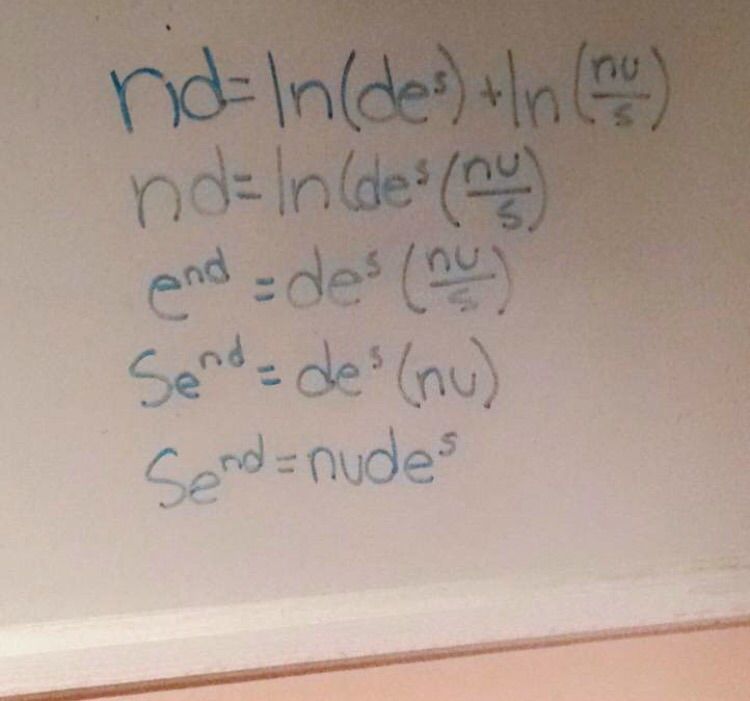 nd=ln(deˢ)+ln(nu/s)
nd=ln(deˢ(nu/s)
eⁿᵈ=deˢ(nu/s)
Seⁿᵈ=deˢ(nu)
Seⁿᵈ=nudeˢ